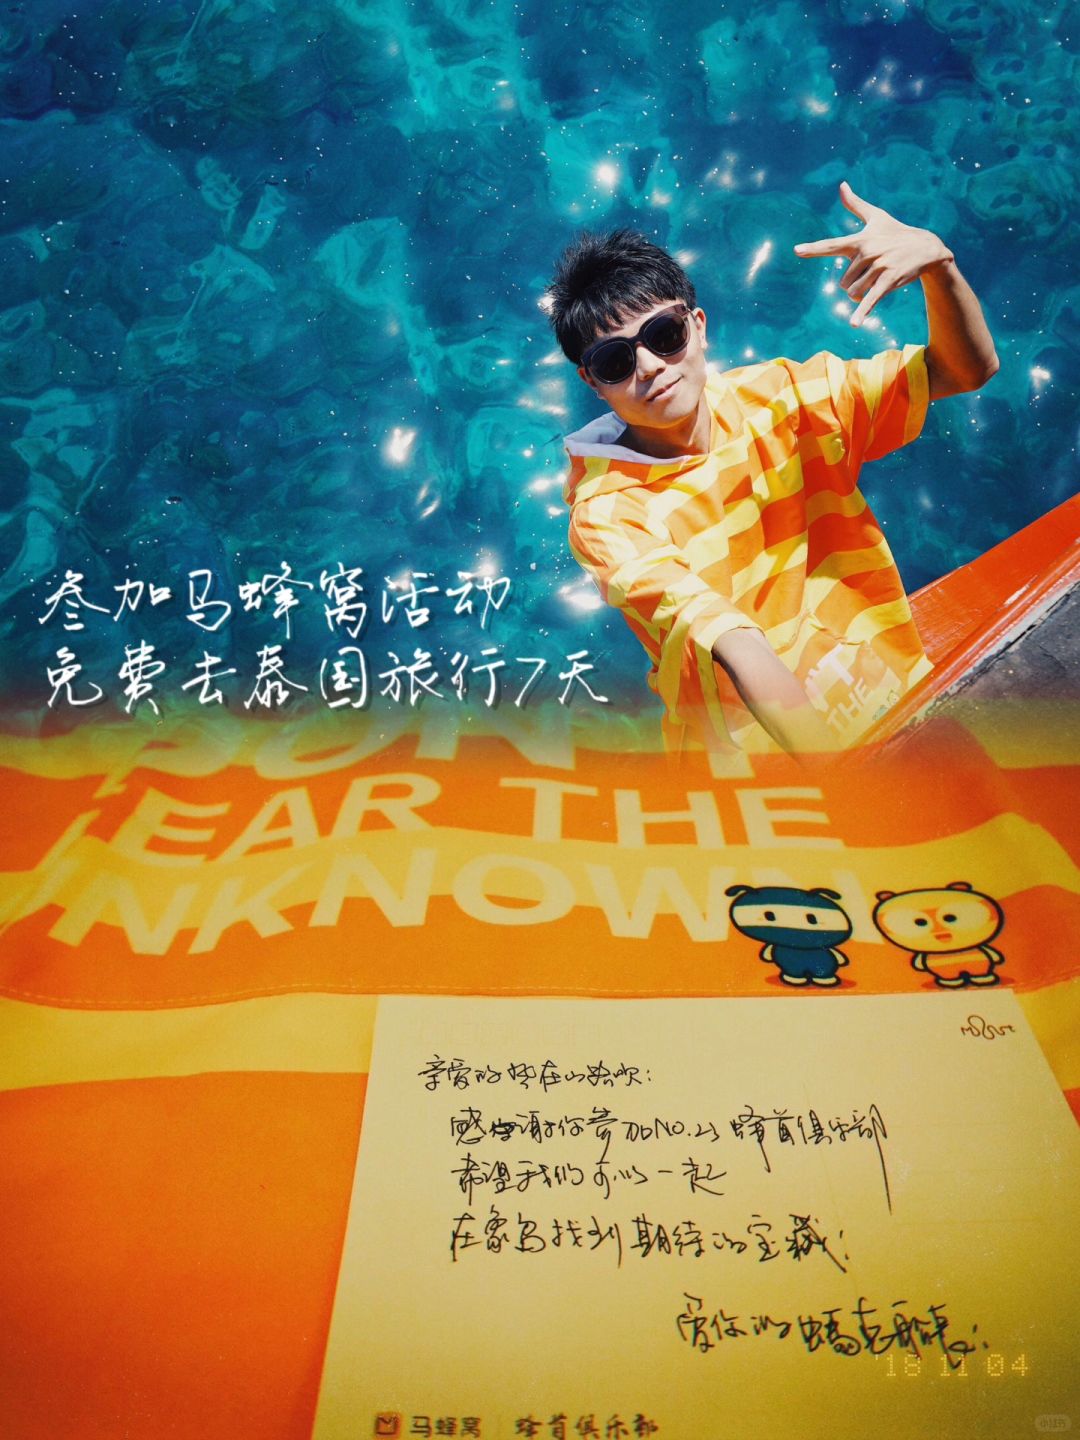 参加马蜂窝活动
免费去泰国旅行7天
THE
DON'T
FEAR THE
UNKNOWN
亲爱的 在山
感谢你参加NO.23 蜂首俱乐部
希望我们可以一起
在象岛找到期待的宝藏!
爱你的 船长:
'18 11 04
马蜂窝 | 蜂首俱乐部
小红书